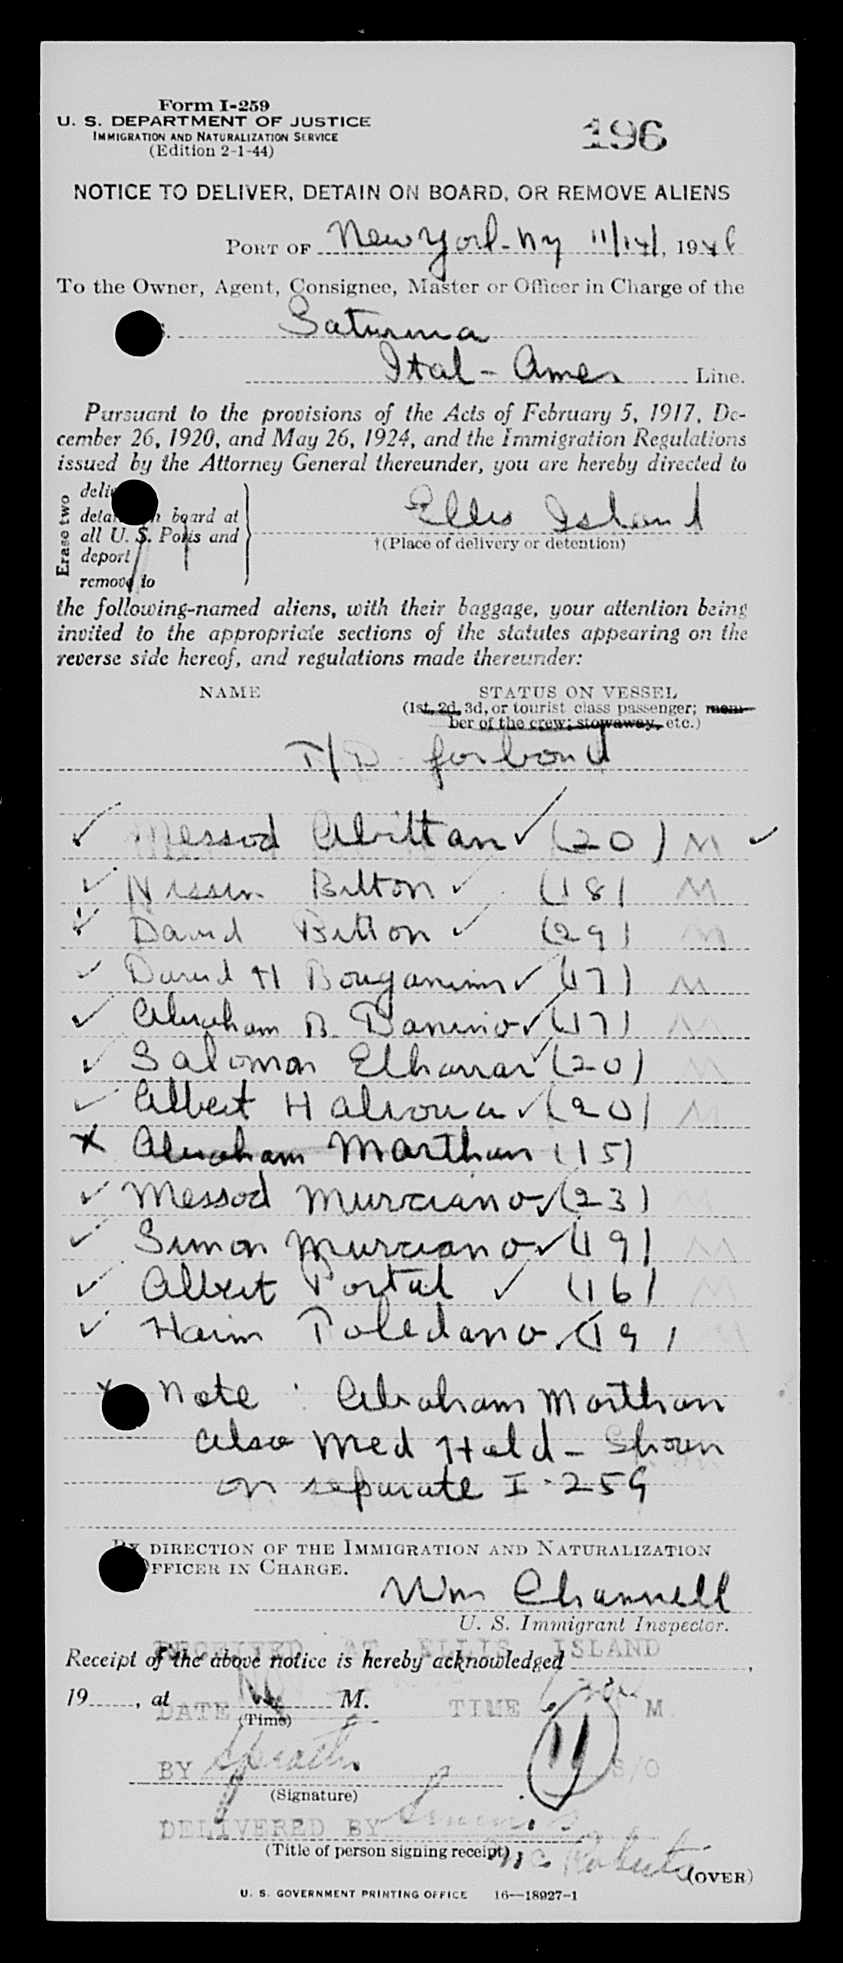 Form I-259
U. S. DEPARTMENT OF JUSTICE
IMMIGRATION AND NATURALIZATION SERVICE
(Edition 2-1-44)
196
NOTICE TO DELIVER, DETAIN ON BOARD, OR REMOVE ALIENS
PORT OF New York - NY 11/14/, 1946
To the Owner, Agent, Consignee, Master or Officer in Charge of the
Saturnia
Ital - Amer Line.
Pursuant to the provisions of the Acts of February 5, 1917, De-
cember 26, 1920, and May 26, 1924, and the Immigration Regulations
issued by the Attorney General thereunder, you are hereby directed to
Erase two
board at
all U. S. Ports and
deport
remove to
Ellis Island
†(Place of delivery or detention)
the following-named aliens, with their baggage, your attention being
invited to the appropriate sections of the statutes appearing on the
reverse side hereof, and regulations made thereunder:
NAME STATUS ON VESSEL
(1st, 2d, 3d, or tourist class passenger; mem-
ber of the crew; stowaway, etc.)
T/D for bond
✓ Messod Abittan ✓ (20) M ✓
✓ Nissim Bitton ✓ (18) M
✓ David Bitton ✓ (29) M
✓ David H Bouganim ✓ (17) M
✓ Abraham B. Banino ✓ (17) M
✓ Salomon Elharrar ✓ (20) M
✓ Albert Halioua ✓ (20) M
x Abraham Marthan (15)
✓ Messod Murciano ✓ (23) M
✓ Simon Murciano ✓ (19) M
✓ Albert Portal ✓ (16) M
✓ Haim Toledano ✓ (19) M
x Note : Abraham Marthan
also Med Hold - Shown
on separate I-259
BY DIRECTION OF THE IMMIGRATION AND NATURALIZATION
OFFICER IN CHARGE.
Wm Channell
U. S. Immigrant Inspector.
RECEIVED AT ELLIS ISLAND
Receipt of the above notice is hereby acknowledged ,
19 , at M.
(Time)
DATE TIME M
11
BY S/O
(Signature)
DELIVERED BY
(Title of person signing receipt)
Mc Roberts
(OVER)
U. S. GOVERNMENT PRINTING OFFICE 16—18927-1